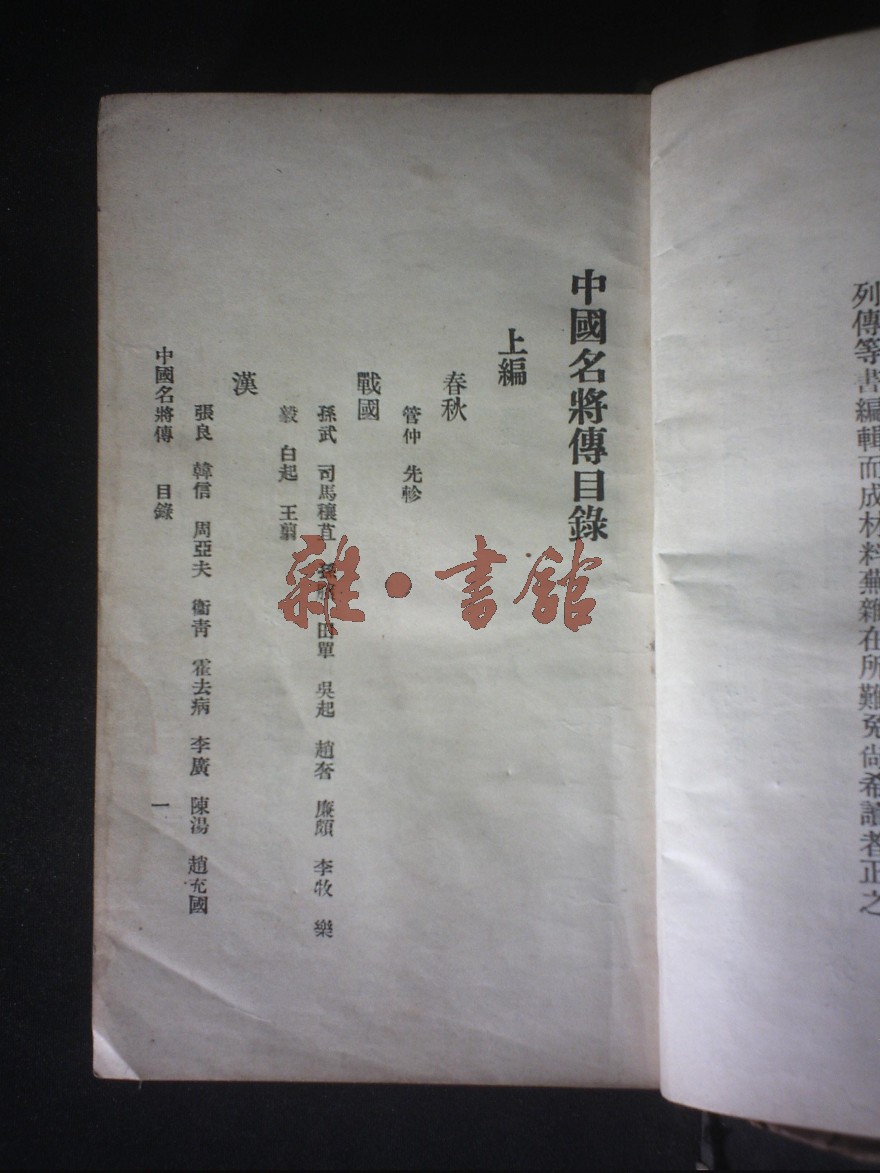 列傳等書編輯而成材料蕪雜在所難免尙希讀者正之
中國名將傳目錄
上編
春秋
管仲 先軫
戰國
孫武 司馬穰苴 田單 吳起 趙奢 廉頗 李牧 樂
毅 白起 王翦
漢
張良 韓信 周亞夫 衞靑 霍去病 李廣 陳湯 趙充國
中國名將傳 目錄 一
雜·書館